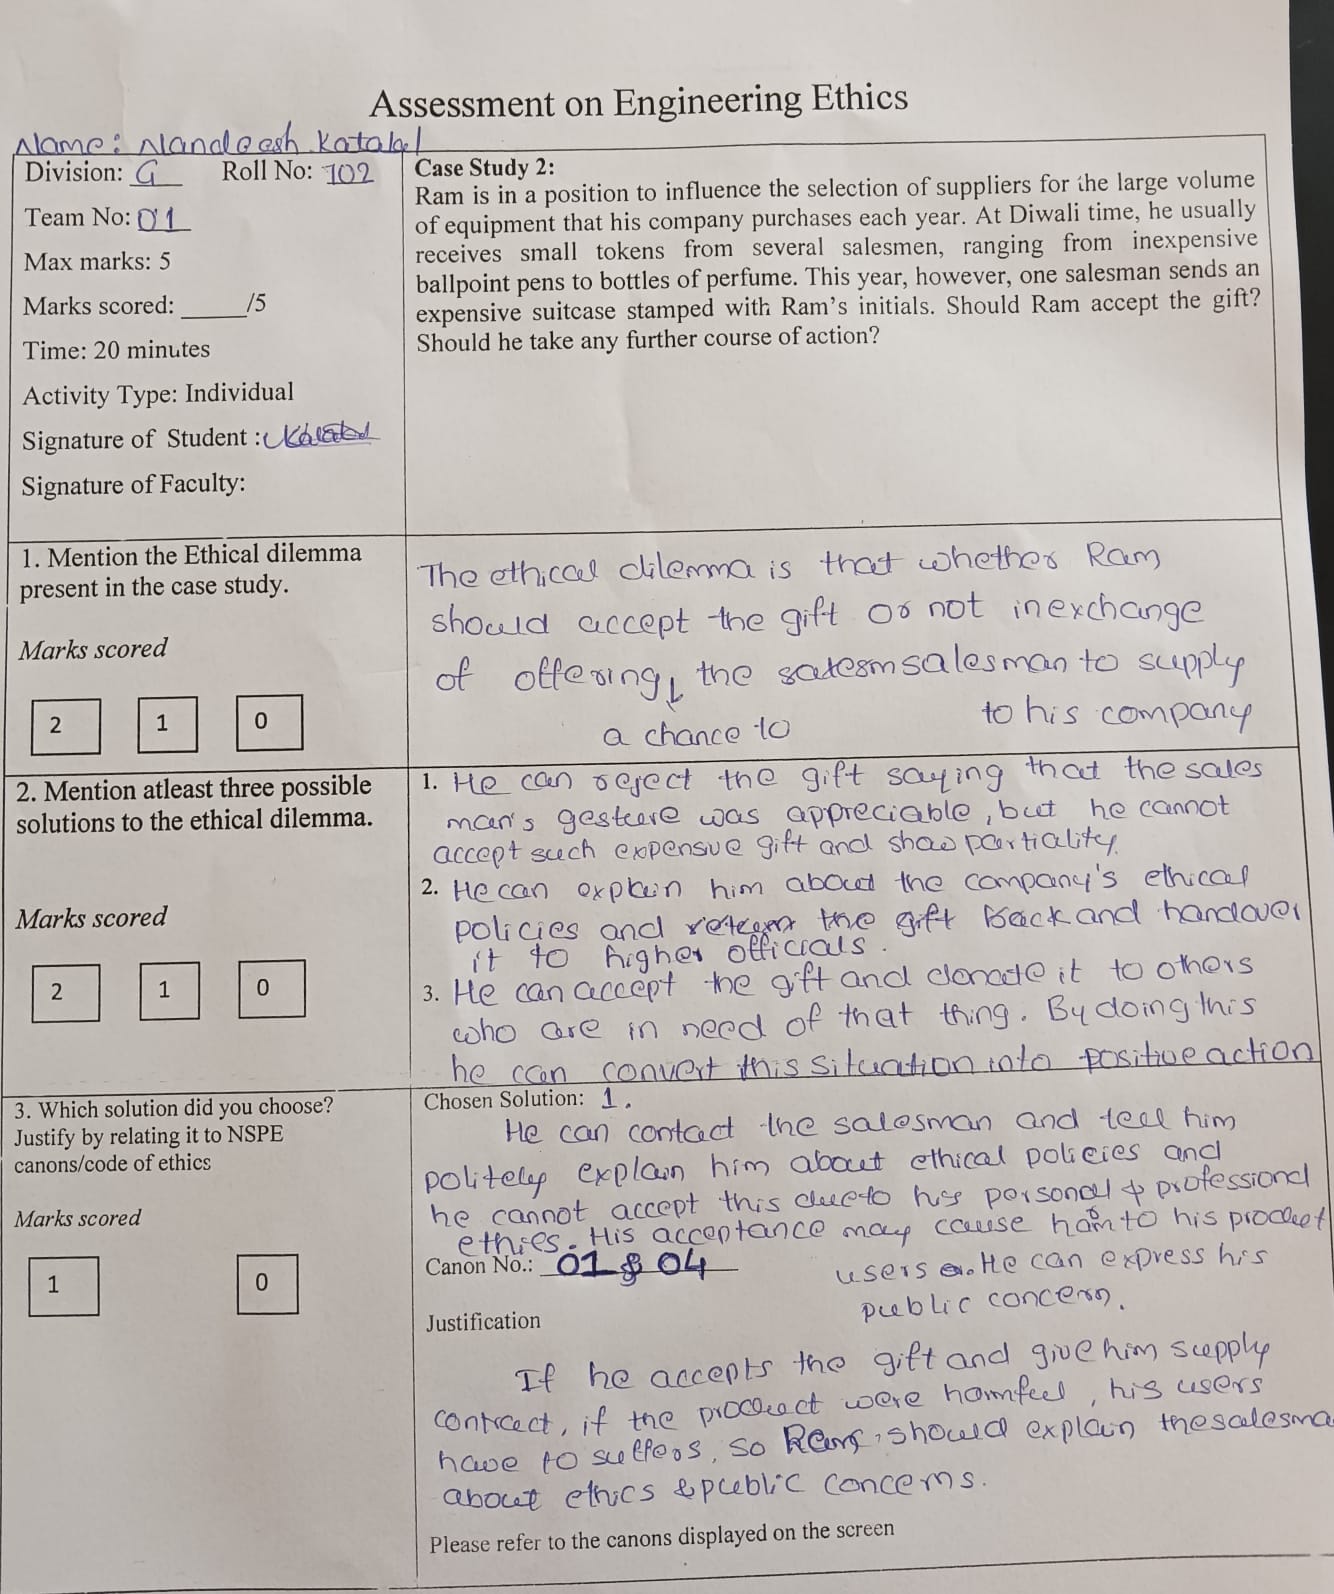 Assessment on Engineering Ethics
Name: Nandeesh Katabel
Division: G
Roll No: 102
Team No: 01
Max marks: 5
Marks scored: ______/5
Time: 20 minutes
Activity Type: Individual
Signature of Student :
Signature of Faculty:
Case Study 2:
Ram is in a position to influence the selection of suppliers for the large volume
of equipment that his company purchases each year. At Diwali time, he usually
receives small tokens from several salesmen, ranging from inexpensive
ballpoint pens to bottles of perfume. This year, however, one salesman sends an
expensive suitcase stamped with Ram's initials. Should Ram accept the gift?
Should he take any further course of action?
1. Mention the Ethical dilemma
present in the case study.
Marks scored
2 1 0
The ethical dilemma is that whether Ram
should accept the gift or not inexchange
of offering, the salesman to supply
a chance to
to his company
2. Mention atleast three possible
solutions to the ethical dilemma.
Marks scored
2 1 0
1. He can reject the gift saying that the sales
man's gesture was appreciable, but he cannot
accept such expensive gift and show partiality.
2. He can explain him about the company's ethical
policies and return the gift back and handover
it to higher officials.
3. He can accept the gift and donate it to others
who are in need of that thing. By doing this
he can convert this situation into positive action
3. Which solution did you choose?
Justify by relating it to NSPE
canons/code of ethics
Marks scored
1 0
Chosen Solution: 1.
He can contact the salesman and tell him
politely explain him about ethical policies and
he cannot accept this due to his personal & professional
ethics. His acceptance may cause harm to his product
Canon No.: 01 & 04
users. He can express his
public concern.
Justification
If he accepts the gift and give him supply
contract, if the product were harmful, his users
have to suffers, so Ram, should explain the salesma
about ethics & public concerns.
Please refer to the canons displayed on the screen